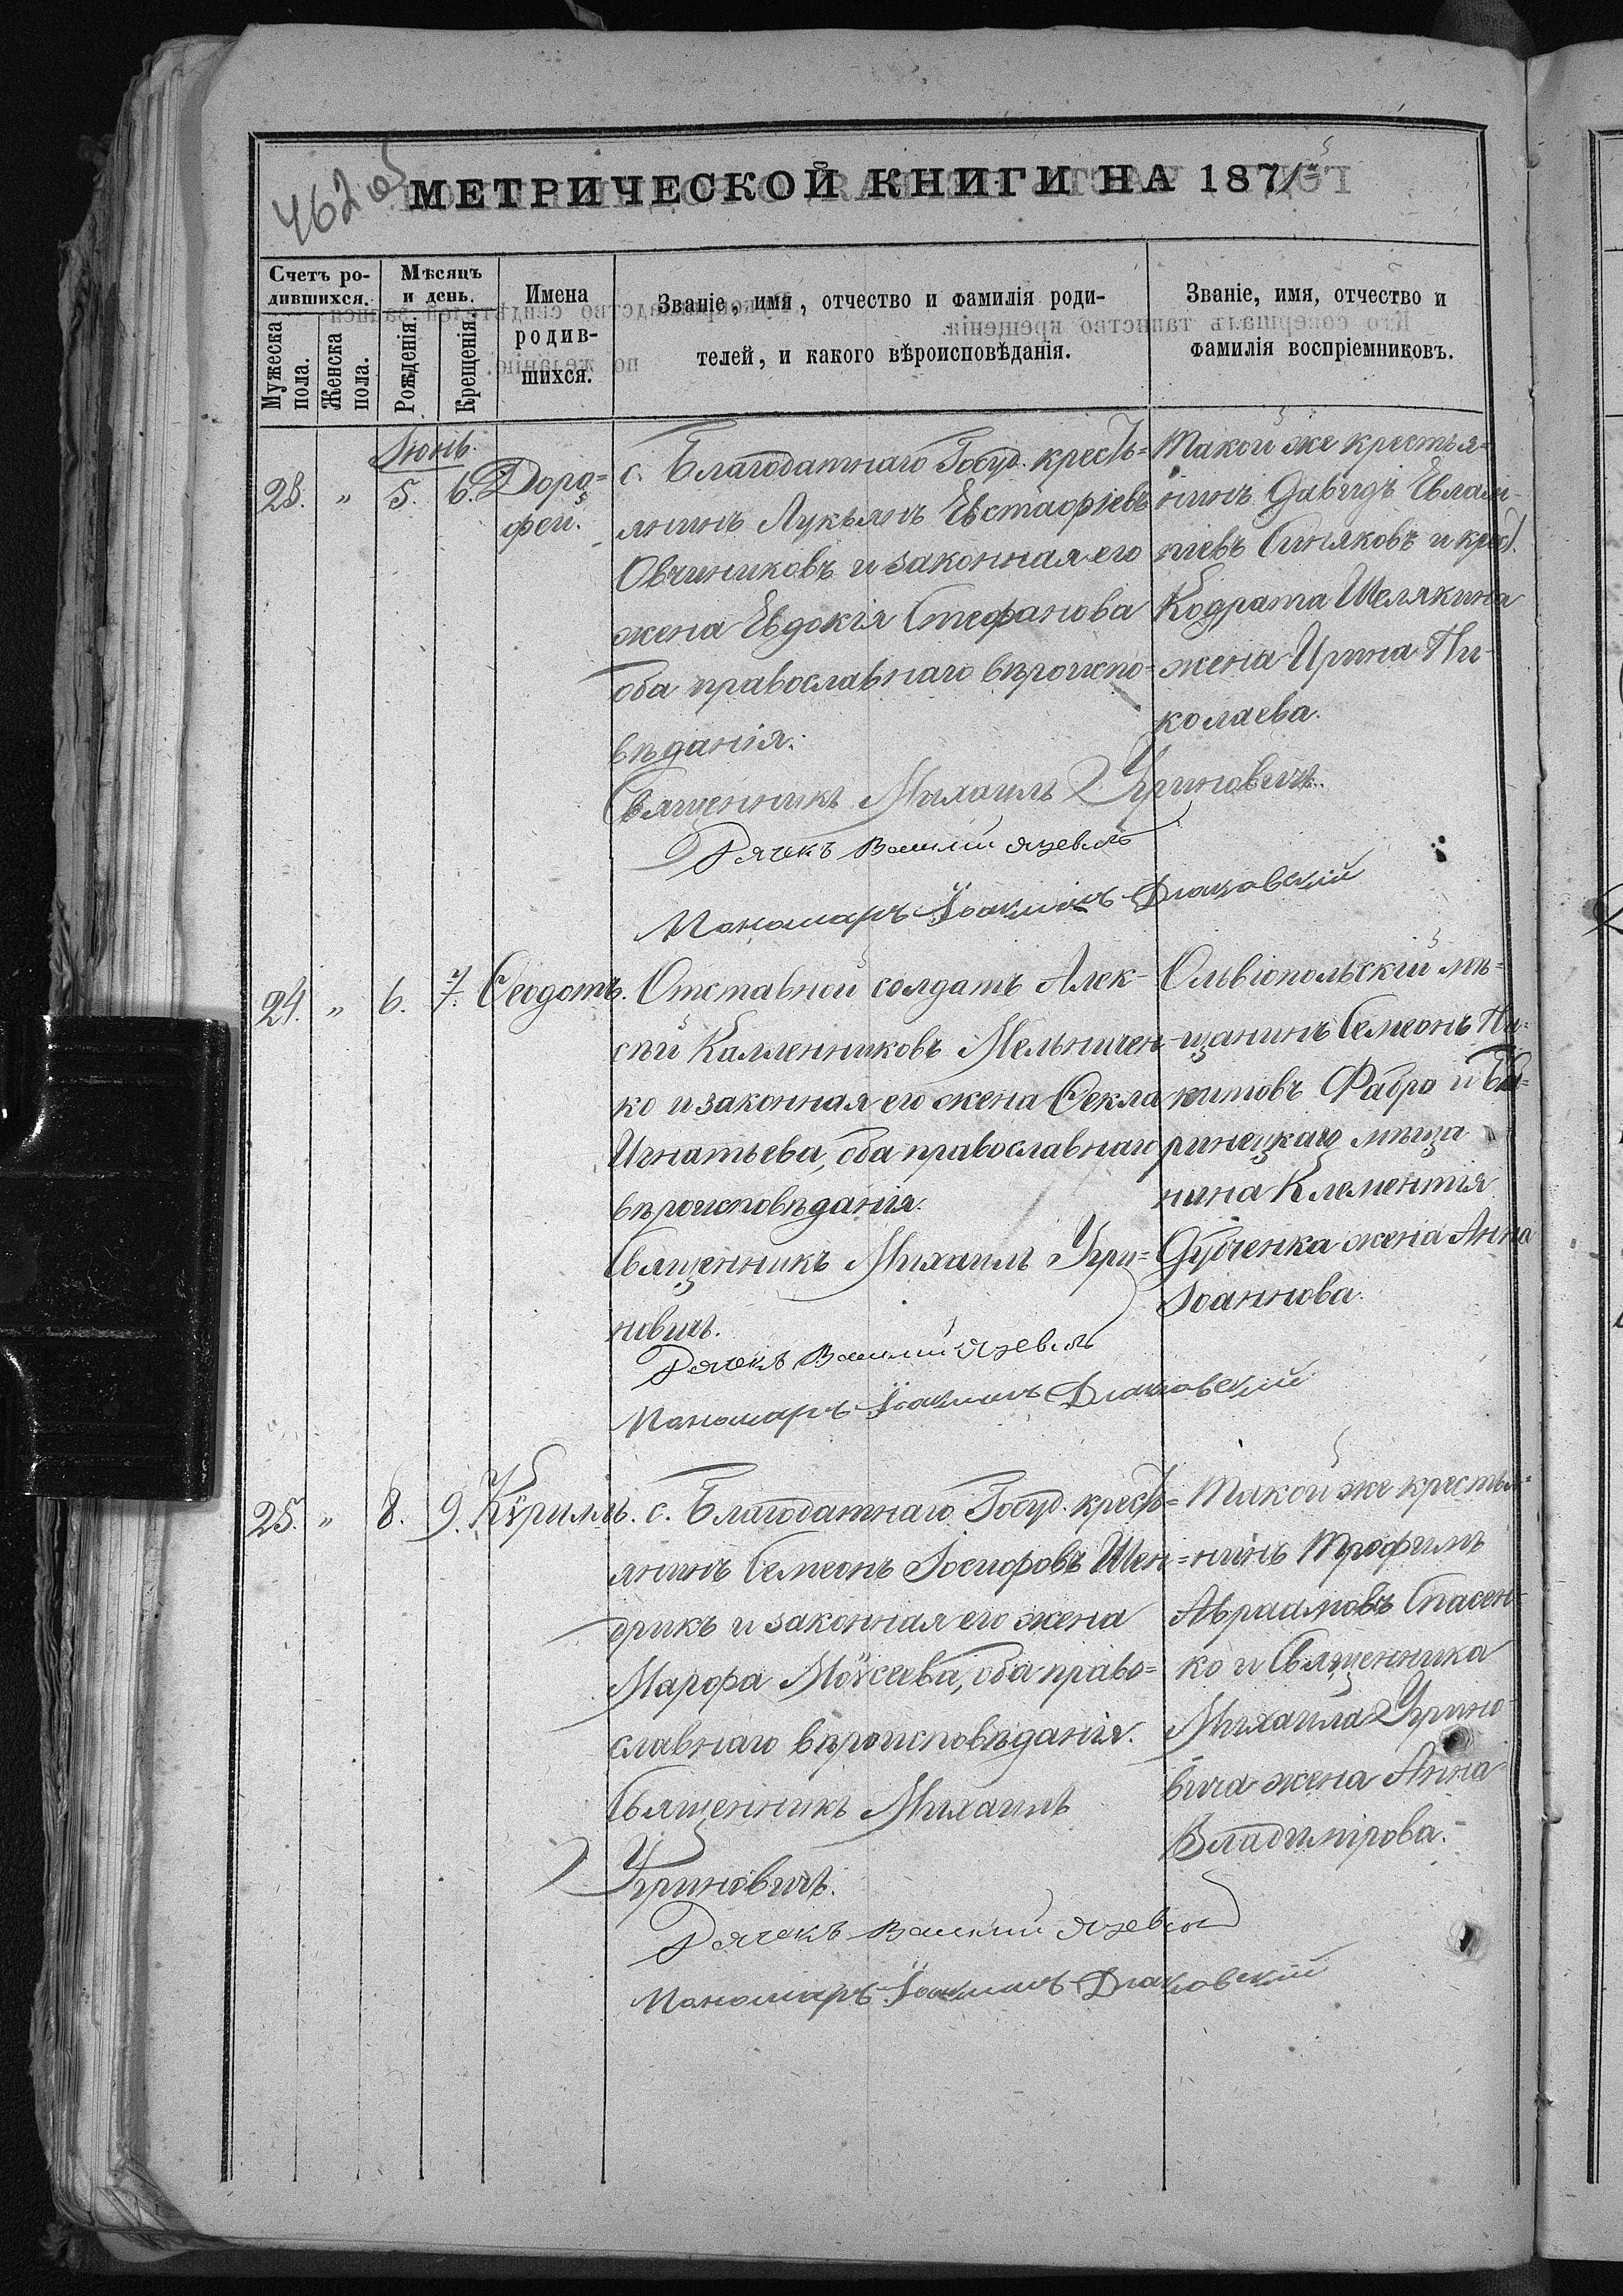 462 об
МЕТРИЧЕСКОЙ КНИГИ НА 1871й
Счетъ ро-
дившихся.
Мужеска
пола.
Женска
пола.
Мѣсяцъ
и день.
Рожденія.
Крещенія.
Имена
родив-
шихся.
Званіе, имя, отчество и фамилія роди-
телей, и какого вѣроисповѣданія.
Званіе, имя, отчество и
фамилія воспріемниковъ.
Іюнь.
23. " 5. 6. Доро=
фей.
с. Благодатнаго Госуд. кресть=
янинъ Лукьянъ Евстафіевъ
Овчиниковъ и законная его
жена Евдокія Стефанова
оба православнаго вѣроиспо=
вѣданія.
Такой же крестья=
нинъ Давидъ Евлам-
піевъ Синяковъ и крест.
Кодрата Шелякина
жена Ирина Ни-
колаева.
Священникъ Михаилъ Угриновичъ.
Дячекъ Василий Язевъ
Пономарь Іоакимъ Дьаковскій
24. " 6. 7. Ѳеодотъ.
Отставной солдатъ Алек-
сѣй Каленниковъ Мельничен-
ко и законная его жена Ѳекла
Игнатьева, оба православнаго
вѣроисповѣданія.
Священникъ Михаилъ Угри=
новичъ.
Дячекъ Василий Язевъ
Пономарь Іоакимъ Дьаковскій
Ольвіопольскій мѣ=
щанинъ Семеонъ Ни=
китовъ Фабро и
ринецкаго мѣща
нина Климентія
Дубченка жена Анна
Іоаннова.
25. " 8. 9. Кѵриллъ.
с. Благодатнаго Госуд. кресть=
янинъ Семеонъ Іосифовъ Шен=
дрикъ и законная его жена
Марфа Моѵсеева, оба право=
славнаго вѣроисповѣданія.
Священникъ Михаилъ
Угриновичъ.
Дячекъ Василий Язевъ
Пономарь Іоакимъ Дьаковскій
Такой же крестья=
нинъ Трофимъ
Авраамовъ Спасен-
ко и Священника
Михаила Угрино-
вича жена Анна
Владимірова.